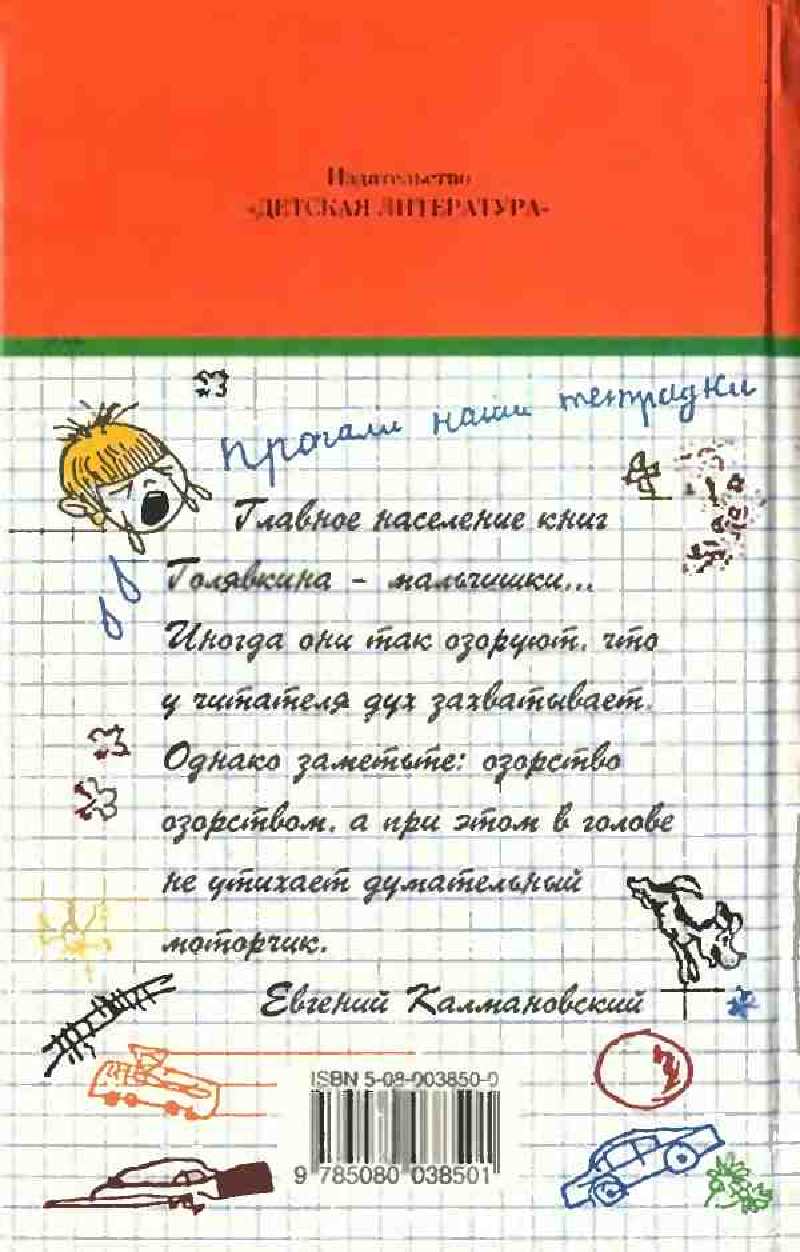 Издательство
«ДЕТСКАЯ ЛИТЕРАТУРА»
Прогали наши тетрадки
Главное население книг
Голявкина - мальчишки...
Иногда они так озоруют, что
у читателя дух захватывает.
Однако заметьте: озорство
озорством, а при этом в голове
не утихает думательный
моторчик.
Евгений Калмановский
ISBN 5-08-003850-0
9 785080 038501